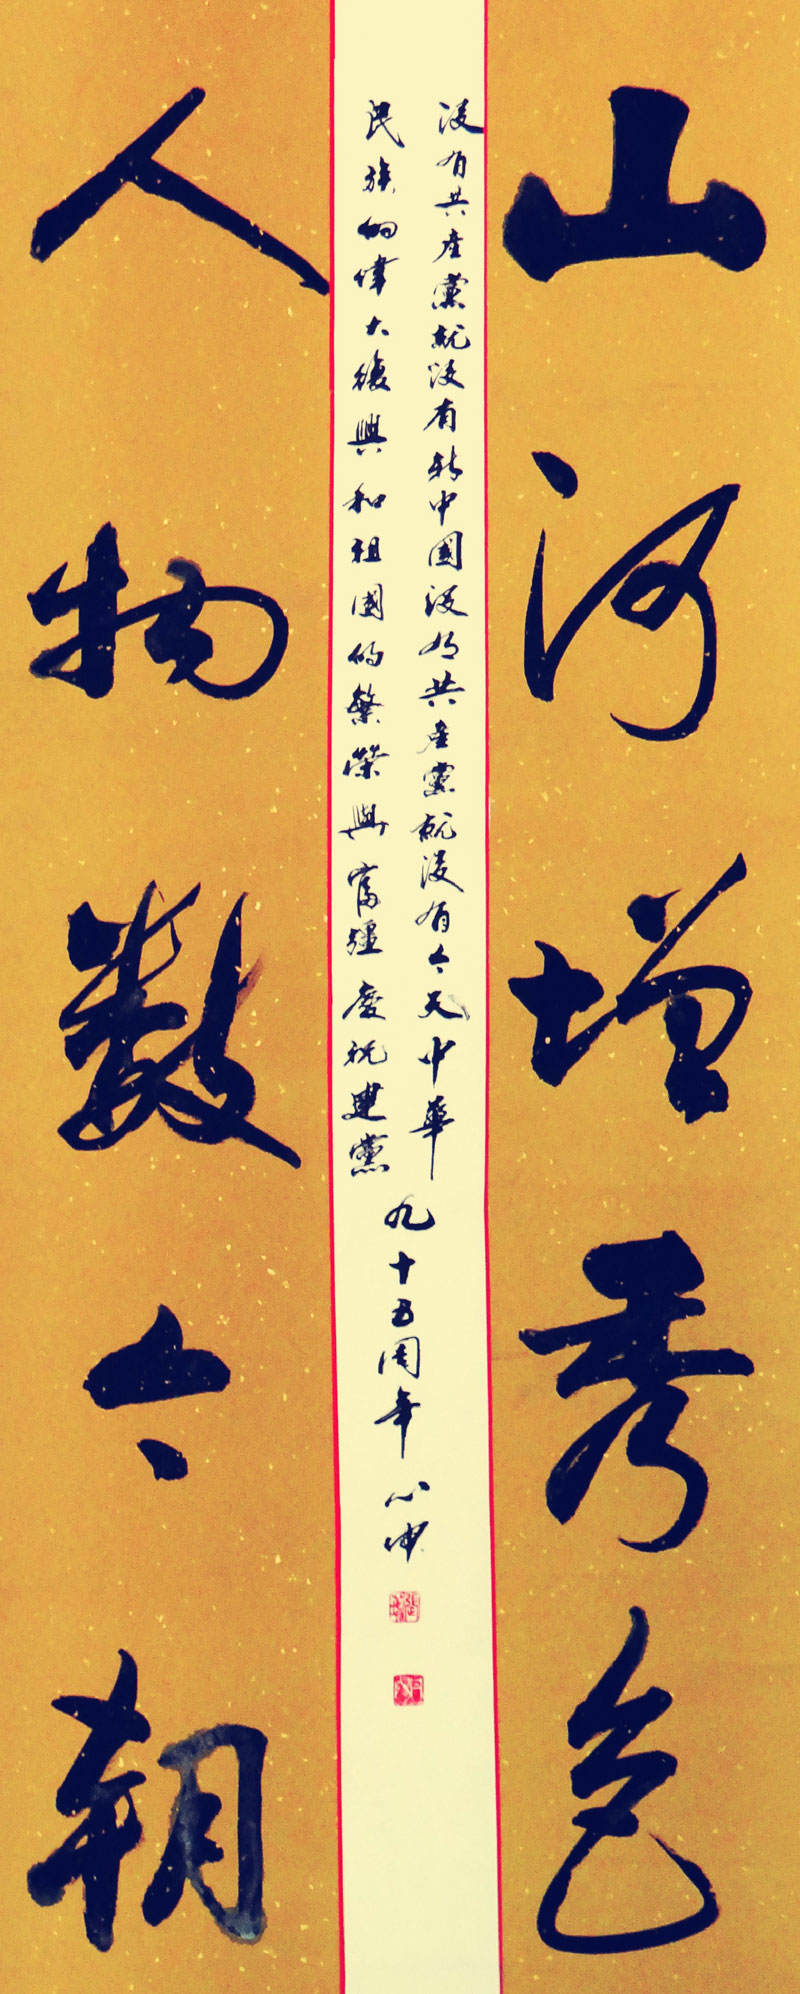 山河增秀色
没有共產黨就没有新中國没有共產黨就没有今天中華
民族的偉大復興和祖國的繁榮與富强慶祝建黨
九十五周年
心
人物數今朝